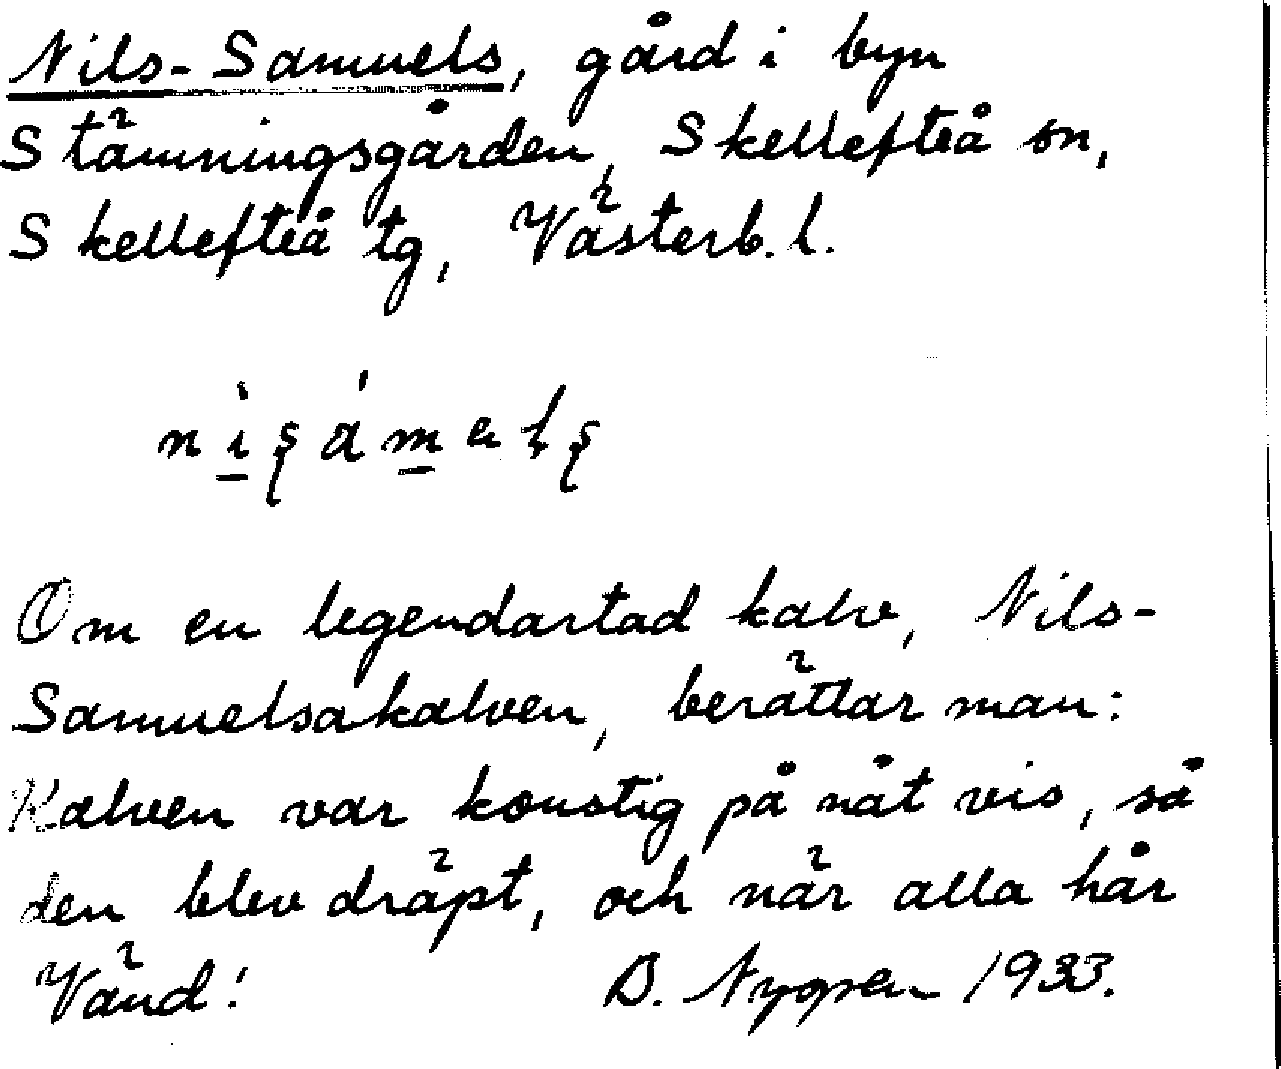 Nils-Samuels, gård i byn
Stämningsgården, Skellefteå sn,
Skellefteå tg, Västerb. l.
Om en legendartad kalv, Nils-
Samuelsakalven, berättar man:
Kalven var konstig på nåt vis, så
den blev dräpt, och när alla hår
Vänd! B. Nygren 1933.